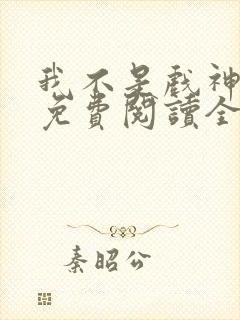 我不是戲神
免費閱讀全
秦昭公